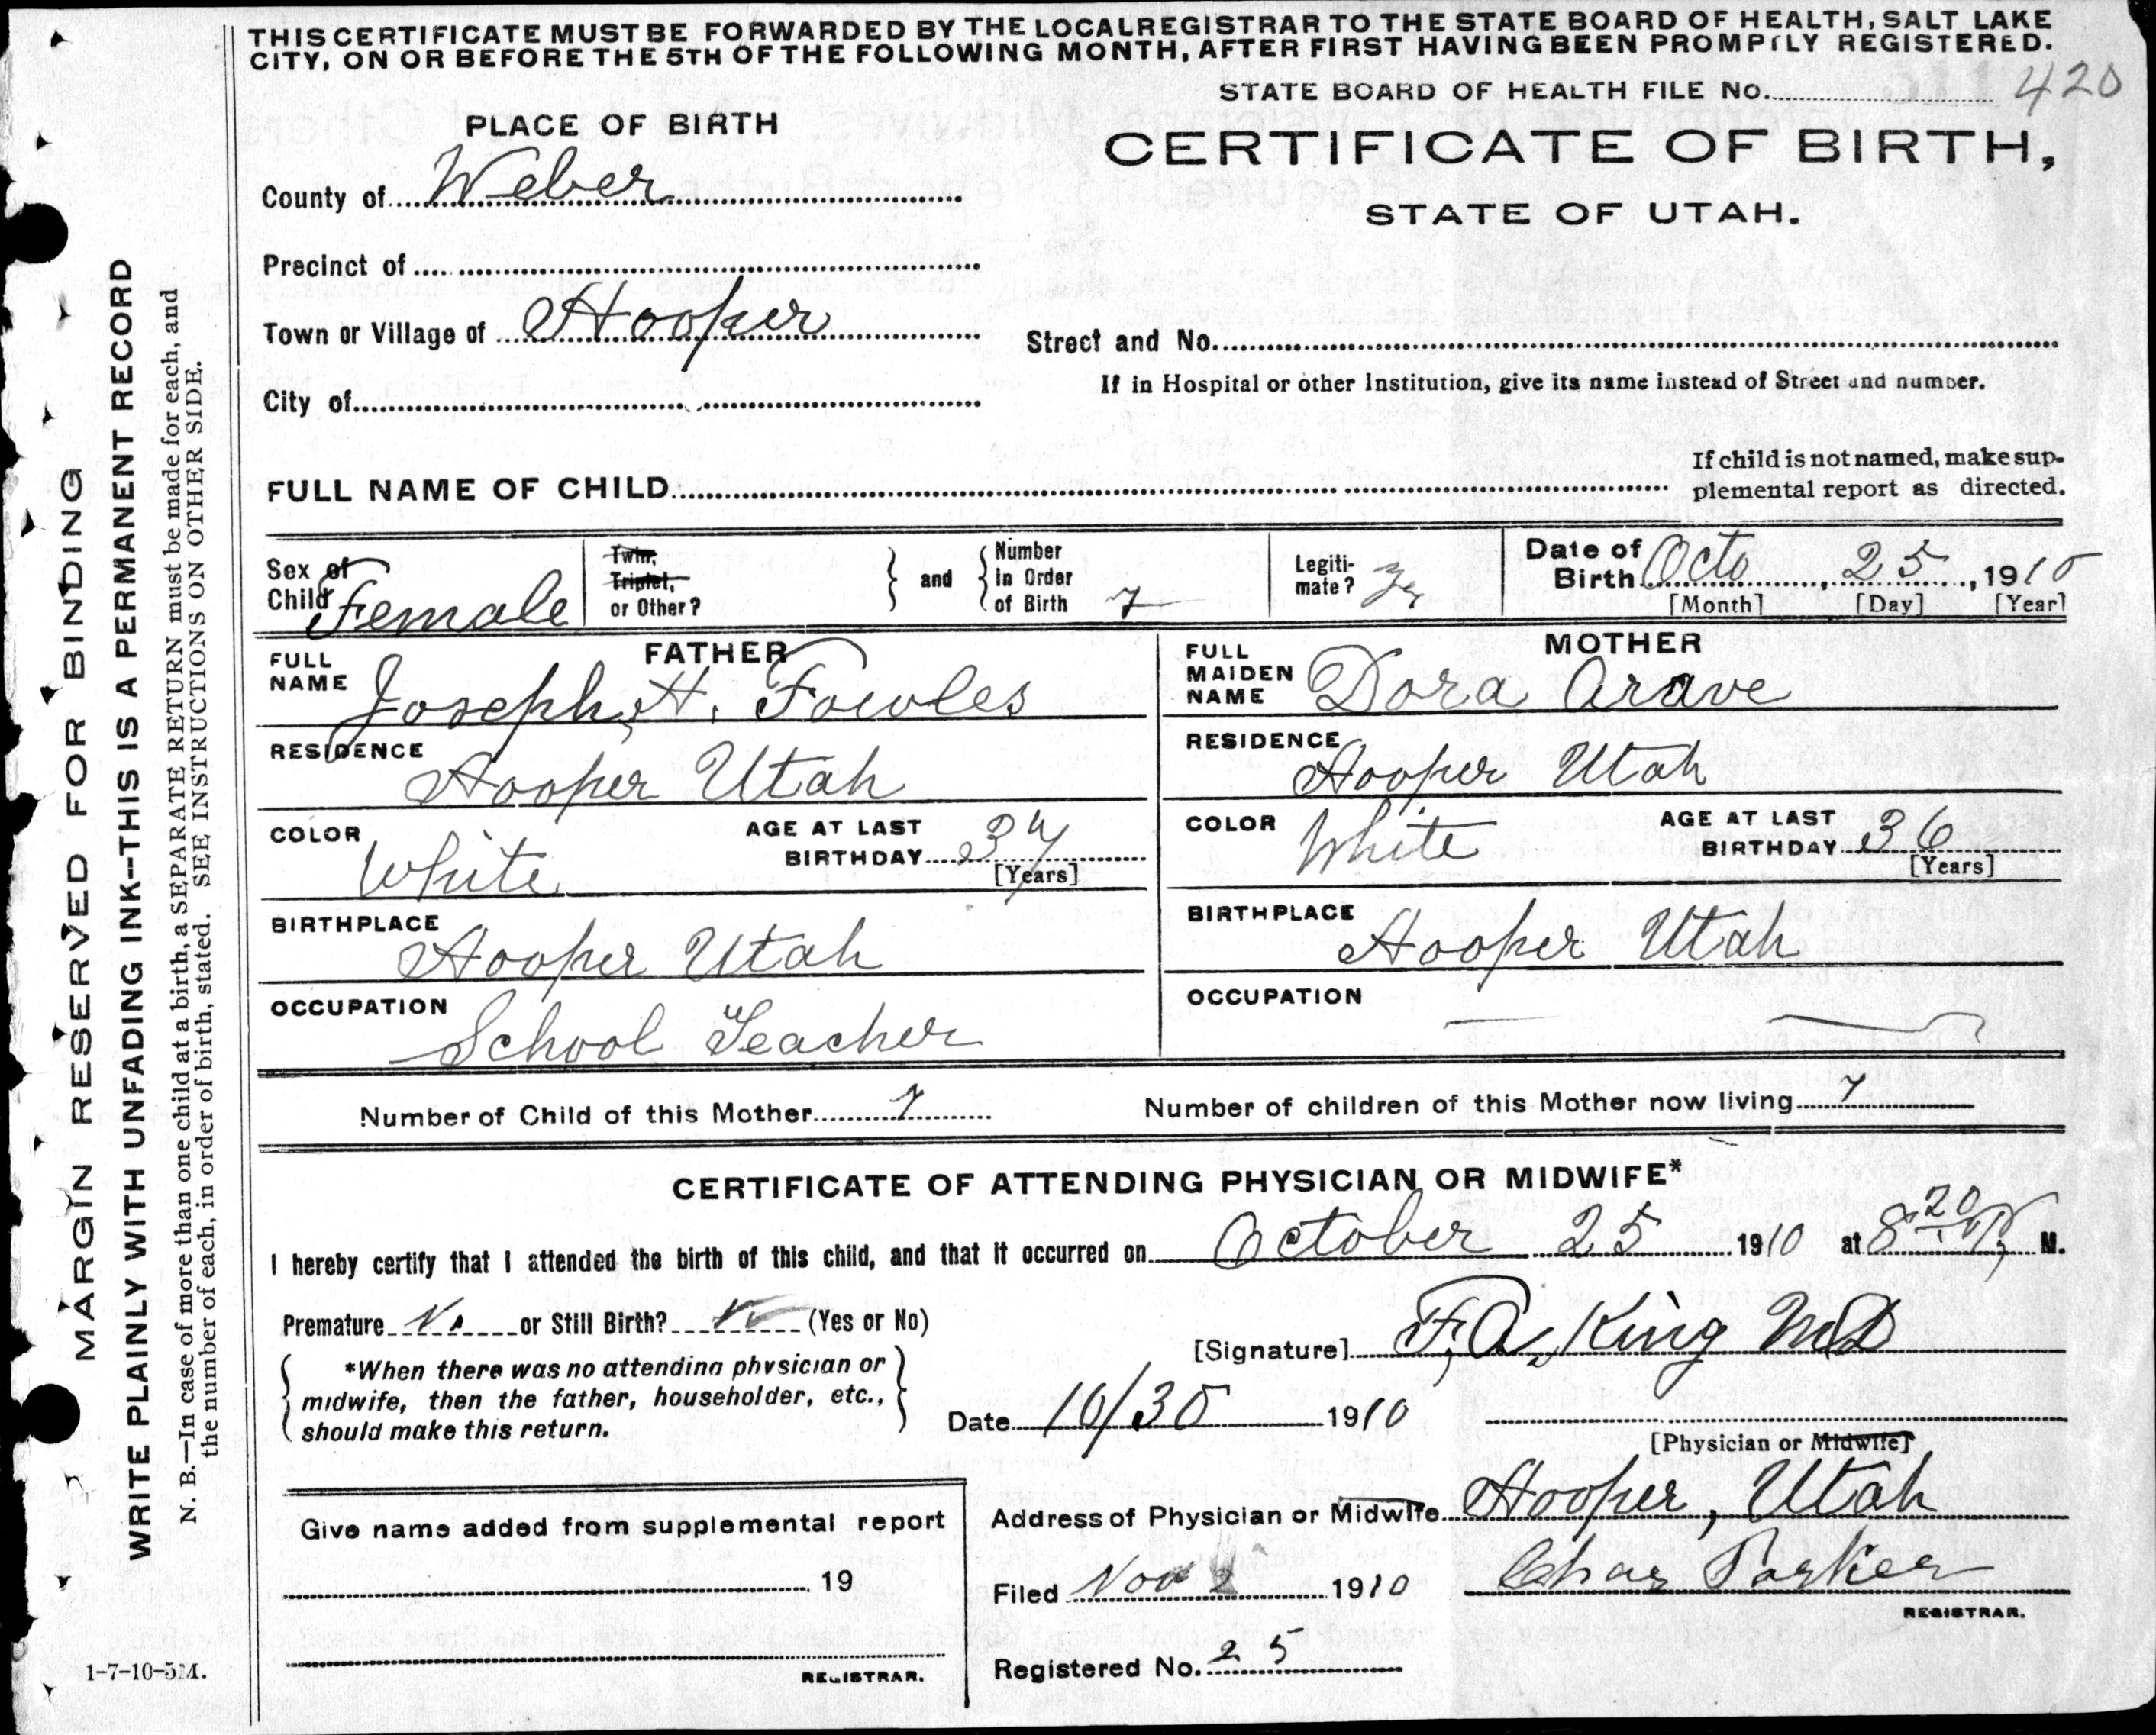 THIS CERTIFICATE MUST BE FORWARDED BY THE LOCAL REGISTRAR TO THE STATE BOARD OF HEALTH, SALT LAKE
CITY, ON OR BEFORE THE 5TH OF THE FOLLOWING MONTH, AFTER FIRST HAVING BEEN PROMPTLY REGISTERED.
STATE BOARD OF HEALTH FILE No. 420
PLACE OF BIRTH
CERTIFICATE OF BIRTH,
STATE OF UTAH.
County of Weber
Precinct of
Town or Village of Hooper
Street and No.
City of
If in Hospital or other Institution, give its name instead of Street and number.
FULL NAME OF CHILD
If child is not named, make sup-
plemental report as directed.
Sex of Child Female
Twin, Triplet, or Other?
and
Number in Order of Birth 7
Legiti-mate? Yes
Date of Birth Octo, 25, 1910
[Month] [Day] [Year]
FATHER
FULL NAME Joseph H. Fowles
RESIDENCE
Hooper Utah
COLOR White
AGE AT LAST BIRTHDAY 37
[Years]
BIRTHPLACE
Hooper Utah
OCCUPATION
School Teacher
MOTHER
FULL MAIDEN NAME Dora Arave
RESIDENCE
Hooper Utah
COLOR White
AGE AT LAST BIRTHDAY 36
[Years]
BIRTHPLACE
Hooper Utah
OCCUPATION
Number of Child of this Mother 7
Number of children of this Mother now living 7
CERTIFICATE OF ATTENDING PHYSICIAN OR MIDWIFE*
I hereby certify that I attended the birth of this child, and that it occurred on October 25 1910 at 8 20 P M.
Premature No or Still Birth? No (Yes or No)
[Signature] F. A. King MD
*When there was no attending physician or
midwife, then the father, householder, etc.,
should make this return.
Date 10/30 1910
[Physician or Midwife]
Address of Physician or Midwife Hooper, Utah
Give name added from supplemental report
19
REGISTRAR.
Filed Nov 2 1910 Chas Parker
REGISTRAR.
Registered No. 25
1-7-10-5M.
MARGIN RESERVED FOR BINDING
WRITE PLAINLY WITH UNFADING INK--THIS IS A PERMANENT RECORD
N. B.—In case of more than one child at a birth, a SEPARATE RETURN must be made for each, and
the number of each, in order of birth, stated. SEE INSTRUCTIONS ON OTHER SIDE.